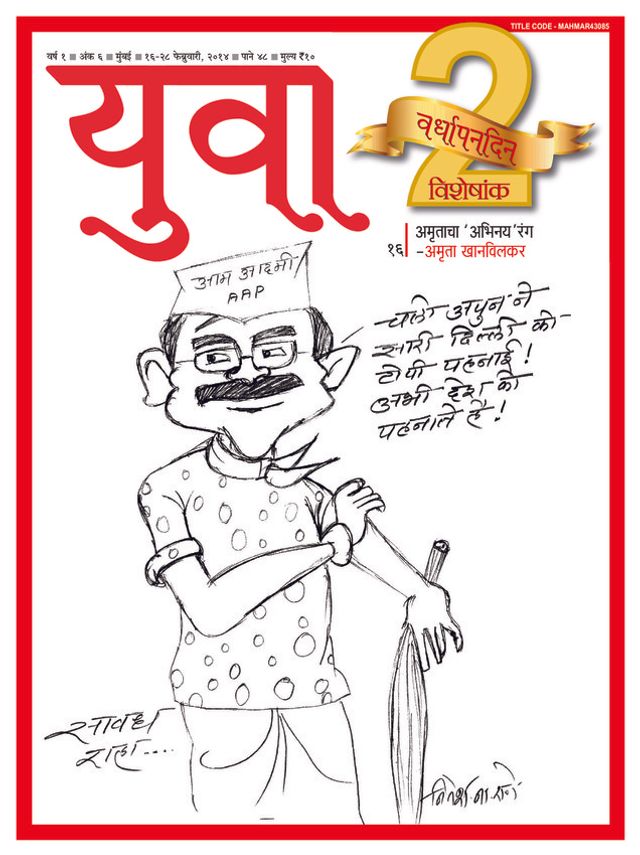 TITLE CODE - MAHMAR43085
वर्ष १ ■ अंक ६ ■ मुंबई ■ १६-२८ फेब्रुवारी, २०१४ ■ पाने ४८ ■ मुल्य ₹१०
युवा
2
वर्धापनदिन
विशेषांक
१६| अमृताचा 'अभिनय'रंग
-अमृता खानविलकर
आम आदमी
AAP
चलो अपुन ने
सारी दिल्ली को
टोपी पहनाई!
अभी देश को
पहनाते है!
सावध
राहा....